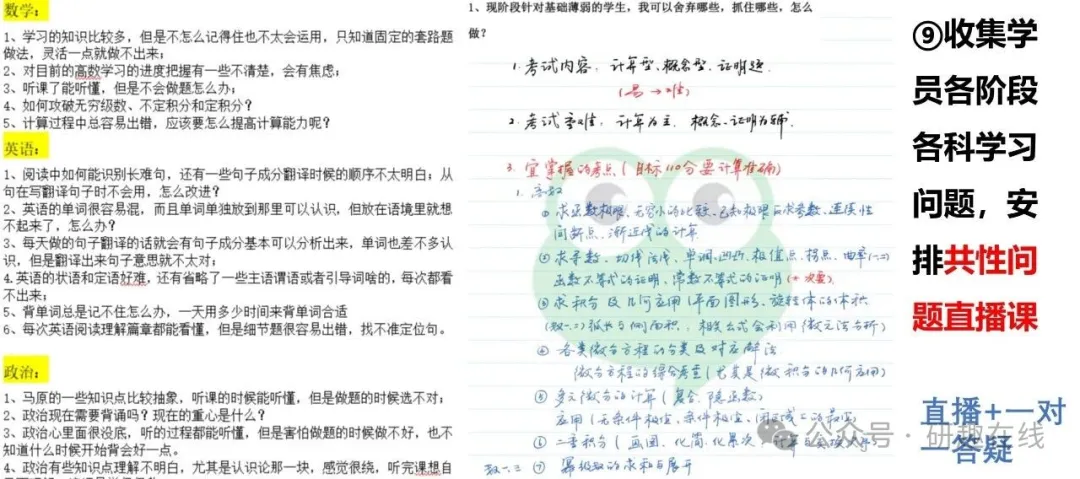 数学：
1、学习的知识比较多，但是不怎么记得住也不太会运用，只知道固定的套路题
做法，灵活一点就做不出来；
2、对目前的高数学习的进度把握有一些不清楚，会有焦虑；
3、听课了能听懂，但是不会做题怎么办；
4、如何攻破无穷级数、不定积分和定积分？
5、计算过程中总容易出错，应该要怎么提高计算能力呢？
英语：
1、阅读中如何能识别长难句，还有一些句子成分翻译时候的顺序不太明白；从
句在写翻译句子时不会用，怎么改进？
2、英语的单词很容易混，而且单词单独放到那里可以认识，但放在语境里就想
不起来了，怎么办？
3、每天做的句子翻译的话就会有句子成分基本可以分析出来，单词也差不多认
识，但是翻译出来句子意思就不太对；
4.英语的状语和定语好难，还有省略了一些主语谓语或者引导词啥的，每次都看
不出来；
5、背单词总是记不住怎么办，一天用多少时间来背单词合适
6、每次英语阅读理解篇章都能看懂，但是细节题很容易出错，找不准定位句。
政治：
1、马原的一些知识点比较抽象，听课的时候能听懂，但是做题的时候选不对；
2、政治现在需要背诵吗？现在的重心是什么？
3、政治心里面很没底，听的过程都能听懂，但是害怕做题的时候做不好，也不
知道什么时候开始背会好一点。
4、政治有些知识点理解不明白，尤其是认识论那一块，感觉很绕，听完课想自
1、现阶段针对基础薄弱的学生，我可以舍弃哪些，抓住哪些，怎么
做？
1. 考试内容：计算型、概念型、证明题.
(易 → 难)
2. 考试重难：计算为主，概念、证明为辅.
3. 宜掌握的考点（目标110分要计算准确）
1. 高数
① 求函数极限、无穷小的比较、已知极限反求参数、连续性
间断点、渐近线的计算
② 求导数、切线法线、单调、凹凸、极值点、拐点、曲率(一二)
函数不等式的证明、常数不等式的证明(次要)
③ 求积分及几何应用（平面图形、旋转体的体积
(数一、二) 弧长与侧面积，相关公式会利用微元法分析)
④ 各类微分方程的分类及对应解法
微分方程的综合考查（尤其是微积分的几何应用）
⑤ 多元微分的计算（复合、隐函数）
应用（无条件极值、条件极值、闭区域上的最值
⑥ 二重积分（画图、化简、化累次、计算
数一、三 ⑦ 幂级数的求和与展开
⑨收集学
员各阶段
各科学习
问题，安
排共性问
题直播课
直播+一对
一答疑
公众号·研趣在线